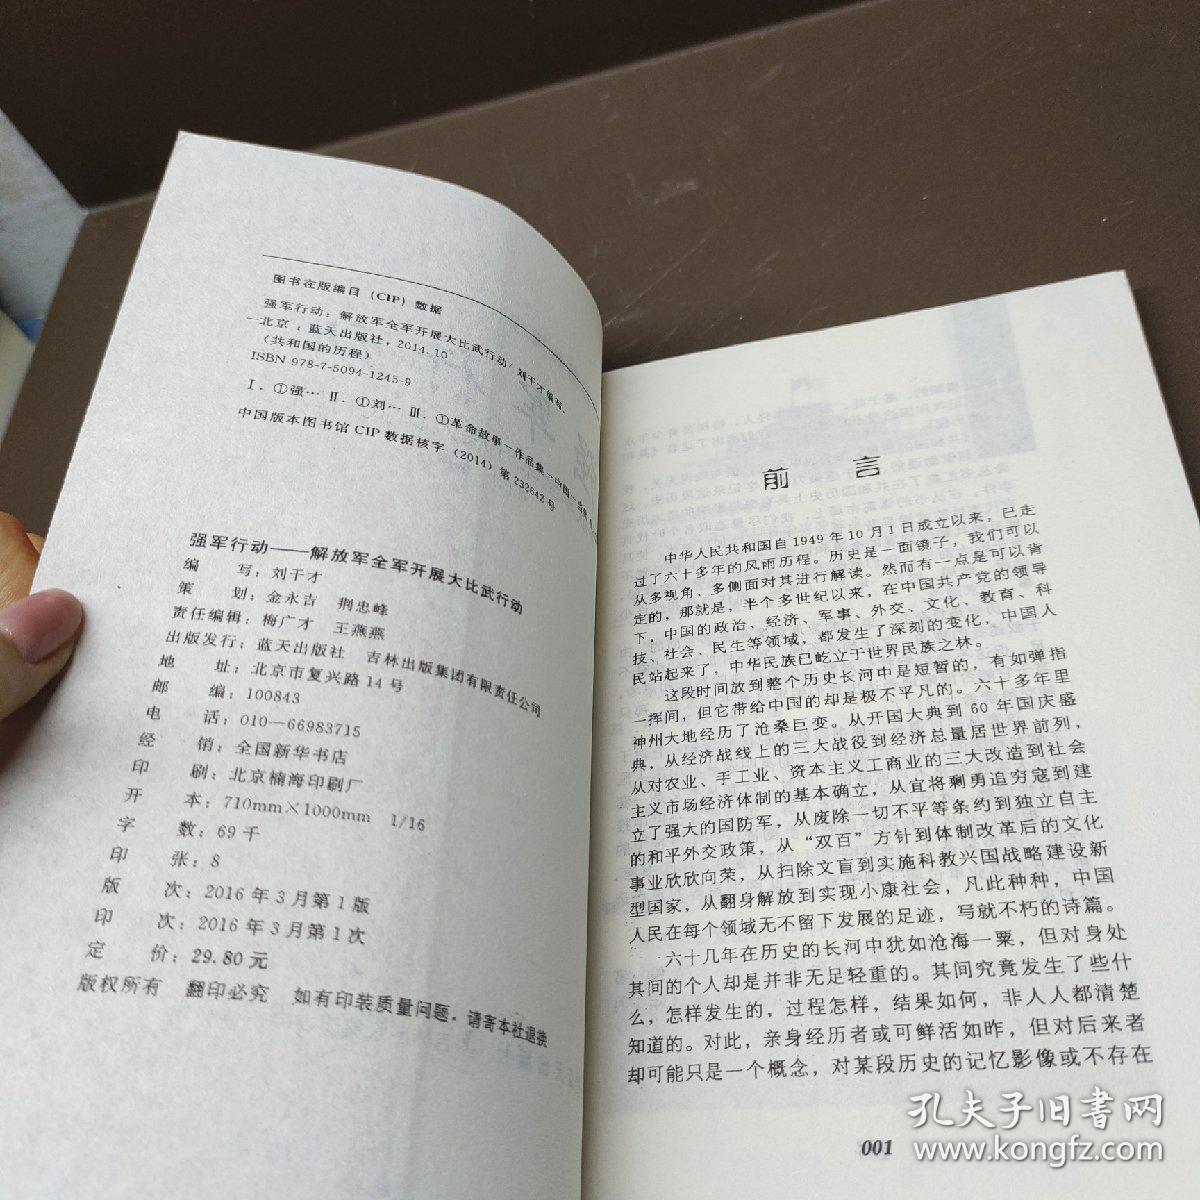 图书在版编目（CIP）数据
强军行动：解放军全军开展大比武行动/刘干才编写．
—北京：蓝天出版社，2014.10
（共和国的历程）
ISBN 978-7-5094-1245-9
Ⅰ．①强… Ⅱ．①刘… Ⅲ．①革命故事－作品集－中国－当代
中国版本图书馆CIP数据核字（2014）第232842号
强军行动——解放军全军开展大比武行动
编　　写：刘干才
策　　划：金永吉　荆忠峰
责任编辑：梅广才　王燕燕
出版发行：蓝天出版社　吉林出版集团有限责任公司
地　　址：北京市复兴路14号
邮　　编：100843
电　　话：010—66983715
经　　销：全国新华书店
印　　刷：北京楠海印刷厂
开　　本：710mm×1000mm　1/16
字　　数：69千
印　　张：8
版　　次：2016年3月第1版
印　　次：2016年3月第1次
定　　价：29.80元
版权所有　翻印必究　如有印装质量问题，请寄本社退换
前　言
中华人民共和国自1949年10月1日成立以来，已走
过了六十多年的风雨历程。历史是一面镜子，我们可以
从多视角、多侧面对其进行解读。然而有一点是可以肯
定的，那就是，半个多世纪以来，在中国共产党的领导
下，中国的政治、经济、军事、外交、文化、教育、科
技、社会、民生等领域，都发生了深刻的变化，中国人
民站起来了，中华民族已屹立于世界民族之林。
这段时间放到整个历史长河中是短暂的，有如弹指
一挥间，但它带给中国的却是极不平凡的。六十多年里
神州大地经历了沧桑巨变。从开国大典到60年国庆盛
典，从经济战线上的三大战役到经济总量居世界前列，
从对农业、手工业、资本主义工商业的三大改造到社会
主义市场经济体制的基本确立，从宜将剩勇追穷寇到建
立了强大的国防军，从废除一切不平等条约到独立自主
的和平外交政策，从“双百”方针到体制改革后的文化
事业欣欣向荣，从扫除文盲到实施科教兴国战略建设新
型国家，从翻身解放到实现小康社会，凡此种种，中国
人民在每个领域无不留下发展的足迹，写就不朽的诗篇。
六十几年在历史的长河中犹如沧海一粟，但对身处
其间的个人却是并非无足轻重的。其间究竟发生了些什
么，怎样发生的，过程怎样，结果如何，非人人都清楚
知道的。对此，亲身经历者或可鲜活如昨，但对后来者
却可能只是一个概念，对某段历史的记忆影像或不存在
001
孔夫子旧书网
www.kongfz.com